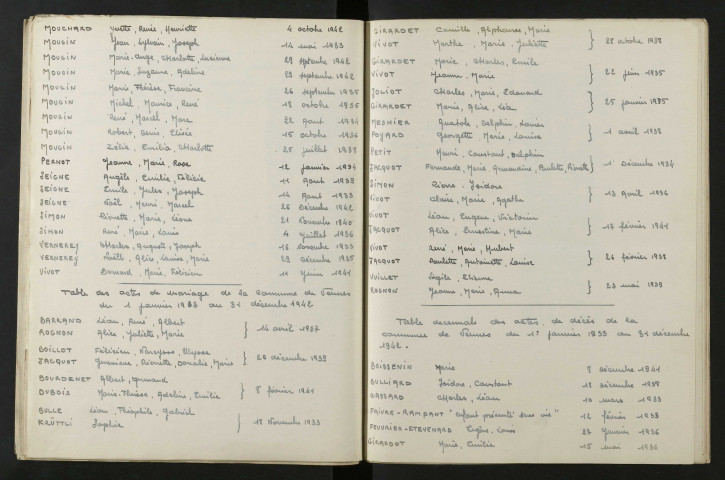 MOUCHARD Yvette, Renée, Henriette 4 octobre 1942
MOUGIN Jean, Sylvain, Joseph 14 mai 1933
MOUGIN Marie-Ange, Charlotte, Lucienne 29 septembre 1942
MOUGIN Marie, Suzanne, Adeline 29 septembre 1942
MOUGIN Marie, Thérèse, Francine 26 septembre 1935
MOUGIN Michel, Maurice, René 18 octobre 1935
MOUGIN René, Marcel, Marc 22 Août 1934
MOUGIN Robert, Denis, 15 octobre 1936
MOUGIN Zélie, Emilia, Charlotte 25 juillet 1938
PERNOT Jeanne, Marie, Rose 12 janvier 1934
SEIGNE Angèle, Emilie, Félicie 11 Août 1938
SEIGNE Emile, Jules, Joseph 14 Août 1933
SEIGNE Noël, Henri, Marcel 26 Décembre 1942
SIMON Pierrette, Marie, 21 Novembre 1940
SIMON René, Marie, Louis 4 juillet 1936
VERNEREY Charles, Auguste, Joseph 16 Novembre 1933
VERNEREY Noëlle, Alice, Louise, Marie 29 Décembre 1935
VIVOT Bernard, Marie, Félicien 11 juin 1941
Table des actes de mariage de la commune de Vennes
du 1 janvier 1933 au 31 décembre 1942
BARRAND Léon, René, Albert
ROGNON Alice, Juliette, Marie } 14 avril 1937
BOILLOT Félicien, Narcysse, Ulysse
JACQUOT Germaine, Pierrette, Marie } 26 décembre 1938
BOURDENET Albert, Armand
DUBOIS Marie-Thérèse, Adeline, Emilie } 8 février 1941
BULLE Léon, Théophile, Gabriel
KRÜTTLI Sophie } 18 Novembre 1933
GIRARDET Camille, Alphonse, Marie
VIVOT Marthe, Marie, Juliette } 28 octobre 1938
GIRARDET Marie, Charles, Emile
VIVOT Jeanne, Marie } 22 juin 1935
JOLIOT Charles, Marie, Edouard
GIRARDET Marie, Alice, Léa } 25 janvier 1935
MESNIER Anatole, Delphin, Louis
POYARD Georgette, Marie, Louise } 1 avril 1938
PETIT Henri, Constant, Delphin
JACQUOT Fernande, Marie, Armandine, Paulette, } 1 Décembre 1934
SIMON Pierre, Isidore
VIVOT Claire, Marie, Agathe } 13 Avril 1936
VIVOT Léon, Eugène, Victorin
JACQUOT Alice, Ernestine, Marie } 17 février 1941
VIVOT René, Marie, Hubert
JACQUOT Paulette, Antoinette, Louise } 26 février 1938
VUILLET Etienne
ROGNON Jeanne, Marie, Anna } 23 mai 1939
Table décennale des actes de décès de la
commune de Vennes du 1er janvier 1933 au 31 décembre
1942.
BOISSENIN Marie 8 décembre 1941
BULLIARD Isidore, Constant 18 décembre 1938
GASSARD Charles, Léon 10 mars 1933
FAIVRE-RAMPANT "enfant présenté sans vie" 12 février 1938
FEUVRIER-ETEVENARD Eugène, Louis 27 janvier 1936
GIRARDOT Marie, Emilie 15 mai 1936